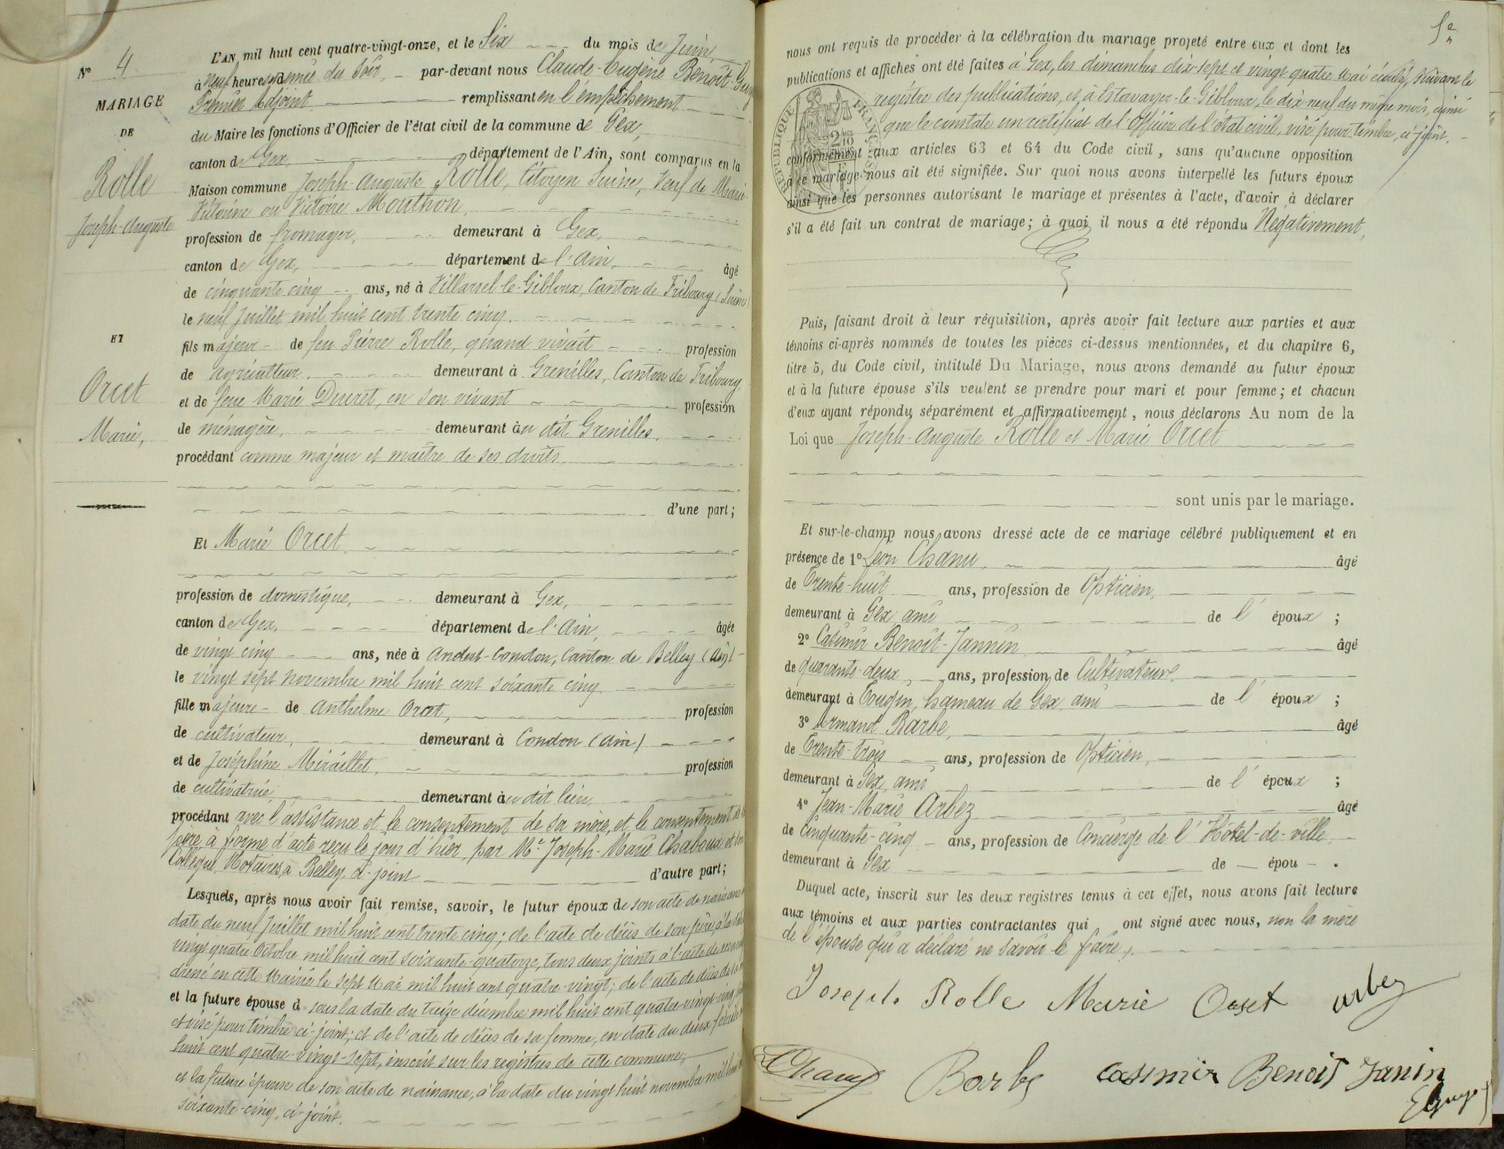 Nº 4
MARIAGE
DE
Rolle
Joseph-Auguste
ET
Orcet
Marie,
L'AN mil huit cent quatre-vingt-onze, et le Six du mois de Juin,
à neuf heures du soir, par-devant nous Claude-Eugène Benoit-
Premier Adjoint remplissant en l'empêchement
du Maire les fonctions d'Officier de l'état civil de la commune de Gex,
canton de Gex département de l'Ain, sont comparus en la
Maison commune Joseph-Auguste Rolle, Citoyen Suisse, Veuf de Marie
Victoire ou Victoire Mouthon,
profession de fromager, demeurant à Gex,
canton de Gex, département de l'Ain, âgé
de cinquante cinq ans, né à Villarsel-le-Gibloux, Canton de Fribourg (Suisse)
le neuf Juillet mil huit cent trente cinq.
fils majeur de feu Pierre Rolle, quand vivait profession
de agriculteur demeurant à Grenilles, Canton de Fribourg
et de feue Marie Ducret, en son vivant profession
de ménagère, demeurant au dit Grenilles.
procédant comme majeur et maître de ses droits
d'une part;
Et Marie Orcet
profession de domestique, demeurant à Gex,
canton de Gex, département de l'Ain, âgée
de vingt cinq ans, née à Andert-Condon, Canton de Belley (Ain)
le vingt sept novembre mil huit cent soixante cinq.
fille majeure de Anthelme Orcet, profession
de cultivateur, demeurant à Condon (Ain)
et de Joséphine Miraillet, profession
de cultivatrice, demeurant au dit lieu
procédant avec l'assistance et le consentement de sa mère, et le consentement de
père, à forme d'acte reçu le jour d'hier, par Me Joseph-Marie Chaboux et
Collègue, Notaires à Belley, ci-joint d'autre part;
Lesquels, après nous avoir fait remise, savoir, le futur époux de son acte de naissance
date du neuf Juillet mil huit cent trente cinq; de l'acte de décès de son père, à la
vingt quatre Octobre mil huit cent soixante-quatorze, tous deux joints à l'acte de
dressé en cette Mairie le sept Mai mil huit cent quatre-vingt; de l'acte de décès de
et la future épouse à sous la date du treize décembre mil huit cent quatre-vingt-cinq
et visé pour timbre ci-joint; et de l'acte de décès de sa femme, en date du deux
huit cent quatre-vingt-sept, inscrit sur les registres de cette commune;
et la future épouse de son acte de naissance, à la date du vingt huit novembre mil huit
soixante-cinq, ci-joint.
nous ont requis de procéder à la célébration du mariage projeté entre eux et dont les
publications et affiches ont été faites à Gex, les dimanches dix-sept et vingt quatre Mai écoulé, suivant le
registre des publications, et à Estavayer-le-Gibloux, le dix neuf du même mois, ainsi
que le constate un certificat de l'Officier de l'état civil, visé pour timbre, ci-joint.
RÉPUBLIQUE FRANÇAISE
conformément aux articles 63 et 64 du Code civil, sans qu'aucune opposition
à ce mariage nous ait été signifiée. Sur quoi nous avons interpellé les futurs époux
ainsi que les personnes autorisant le mariage et présentes à l'acte, d'avoir à déclarer
s'il a été fait un contrat de mariage; à quoi il nous a été répondu Négativement,
Puis, faisant droit à leur réquisition, après avoir fait lecture aux parties et aux
témoins ci-après nommés de toutes les pièces ci-dessus mentionnées, et du chapitre 6,
titre 5, du Code civil, intitulé Du Mariage, nous avons demandé au futur époux
et à la future épouse s'ils veulent se prendre pour mari et pour femme; et chacun
d'eux ayant répondu séparément et affirmativement, nous déclarons Au nom de la
Loi que Joseph-Auguste Rolle et Marie Orcet
sont unis par le mariage.
Et sur-le-champ nous avons dressé acte de ce mariage célébré publiquement et en
présence de 1º Léon Chanu, âgé
de Trente-huit ans, profession de Opticien,
demeurant à Gex, ami de l'époux;
2º Casimir Benoit-Jannin âgé
de quarante-deux ans, profession de Cultivateur,
demeurant à Tougin, hameau de Gex, ami de l'époux;
3º Armand Barbe, âgé
de Trente-trois ans, profession de Opticien,
demeurant à Gex, ami de l'époux;
4º Jean-Marie Arbez âgé
de Cinquante-cinq ans, profession de Concierge de l'Hôtel-de-ville
demeurant à Gex de — épou — .
Duquel acte, inscrit sur les deux registres tenus à cet effet, nous avons fait lecture
aux témoins et aux parties contractantes qui ont signé avec nous, non la mère
de l'épouse qui a déclaré ne savoir le faire.
Joseph Rolle Marie Orset Arbez
Chanu Barbe Casimir Benoit Janin